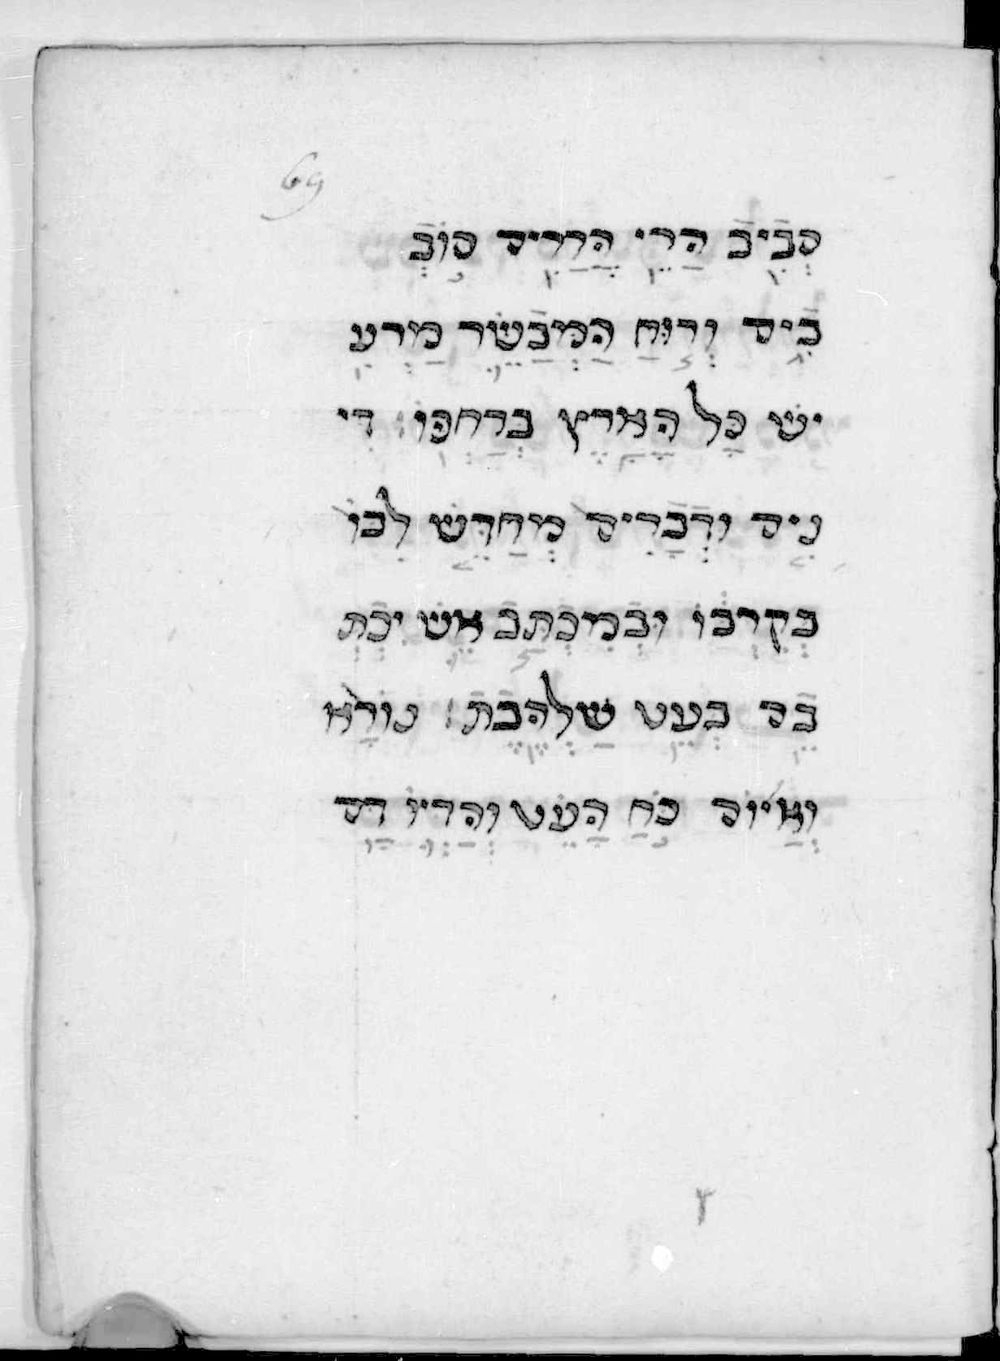 69
סְבִיב הַרֵי הָרָרִים סוֹבְ
בִים וְרוּחַ הַמְבַשֵׂר מַרְעִ
ישׁ כָּל הָאָרֶץ בְּרַחְפוֹ׃ דִי
נִים וּדְבָרִים מְחַדֵשׁ לִבּוֹ
בְּקִרְבּוֹ וּבְמִכְתַב אֵשׁ יִכְתְ
בֵם בְּעֵט שַׁלְהֶבֶת׃ נוֹרָא
וְאַיוֹם כֹּחַ הָעֵט וְהַדְיוֹ דַם